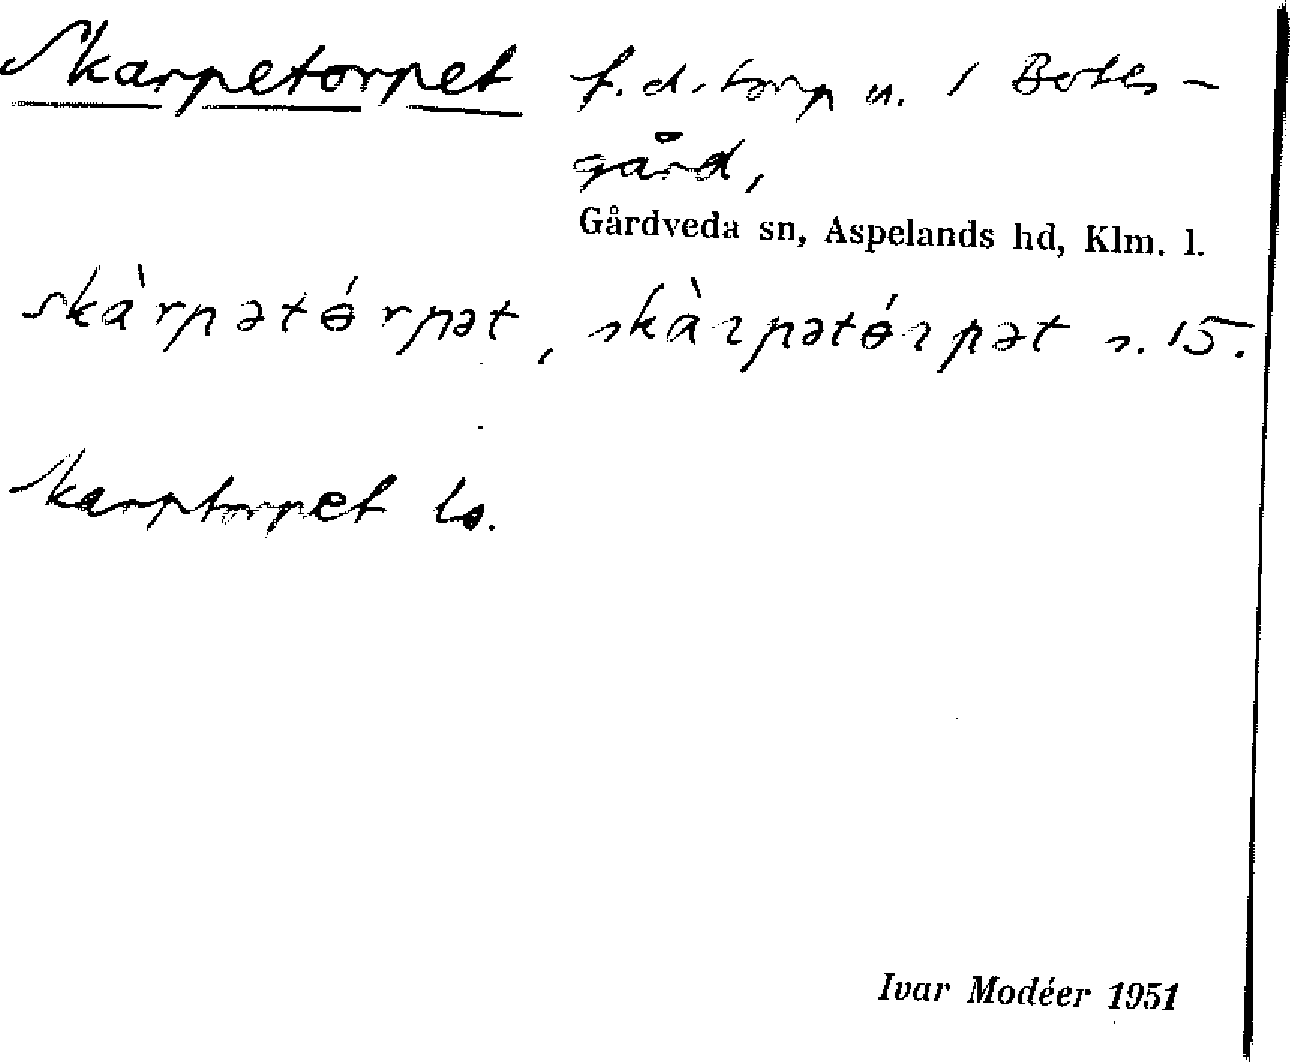 Skarpetorpet f.d. torp u. 1 Botes-
gård,
Gårdveda sn, Aspelands hd, Klm. l.
skàrpətɵ́rpət, skàɿpətɵ́ɿpət s. 15.
Skarptorpet
Ivar Modéer 1951